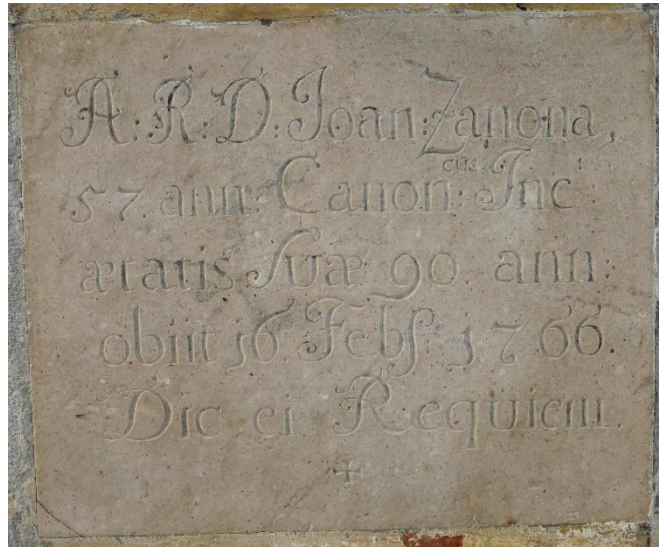 A: R: D: Joan: Zanona,
57. ann: Canon:cus Inc:
ætatis Suæ 90 ann:
obiit 16. Febr: 1766.
Dic ei Requiem.